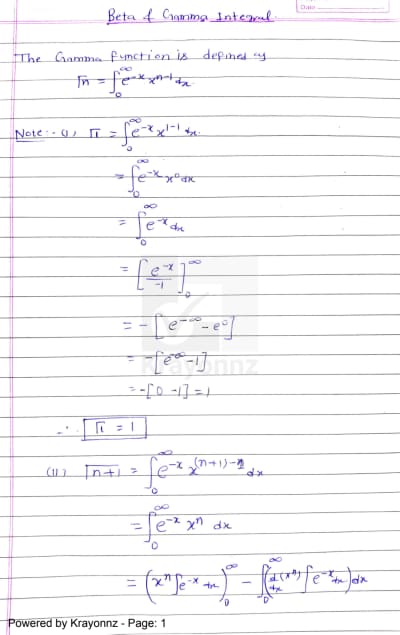 Beta & Gamma Integral.
Date
The Gamma function is defined as
Γn = ∫₀^∞ e^-x x^n-1 dx
Note:- (i) Γ1 = ∫₀^∞ e^-x x^1-1 dx.
= ∫₀^∞ e^-x x^0 dx
= ∫₀^∞ e^-x dx
= [e^-x / -1]₀^∞
= -[e^-∞ - e^0]
= -[e^∞ - 1]
= -[0 - 1] = 1
∴ Γ1 = 1
(ii) Γn+1 = ∫₀^∞ e^-x x^(n+1)-1 dx
= ∫₀^∞ e^-x x^n dx
= (x^n ∫e^-x dx)₀^∞ - ∫₀^∞ (d/dx (x^n) ∫e^-x dx) dx
Krayonnz
Powered by Krayonnz - Page: 1